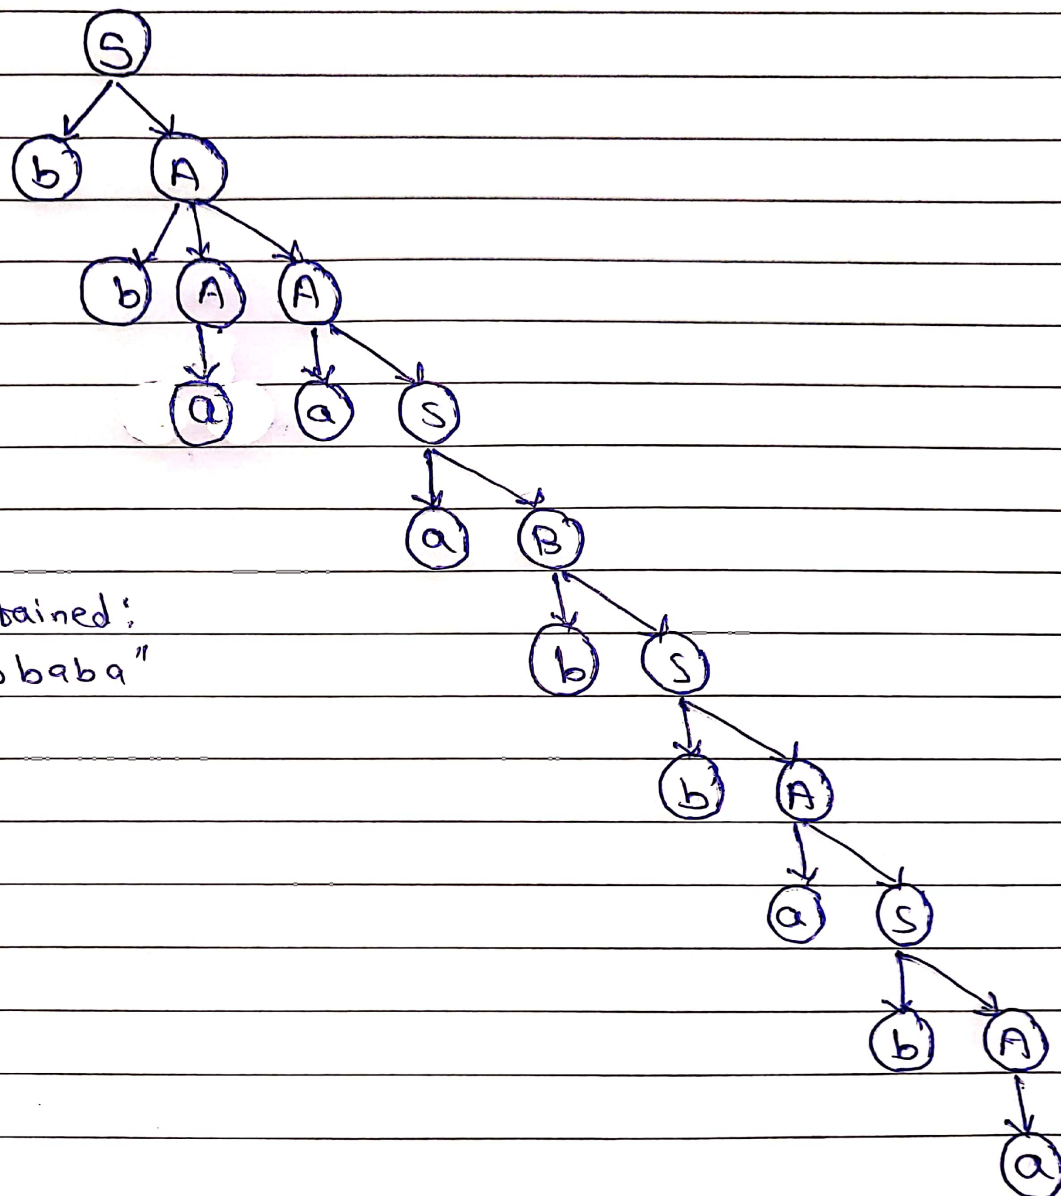 S
b A
b A A
a a S
a B
tained:
b S
baba"
b A
a S
b A
a